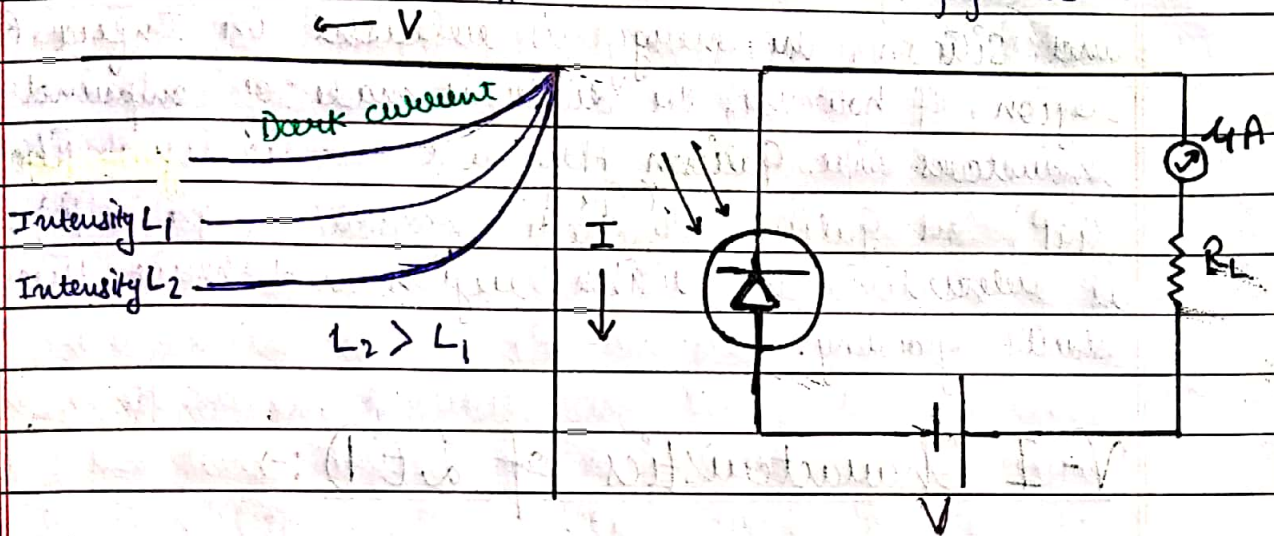 ← V
Dark current
Intensity L1
Intensity L2
L2 > L1
I
μA
RL
V